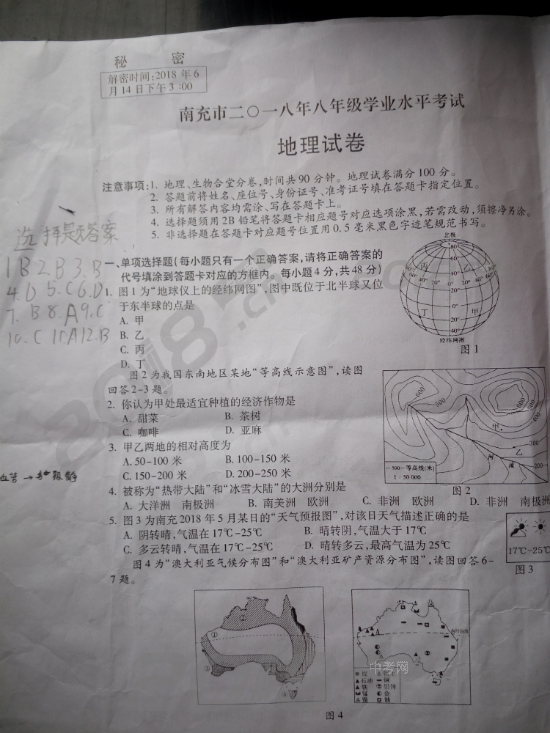 秘 密
解密时间:2018 年 6
月 14 日下午 3:00
南充市二〇一八年八年级学业水平考试
地理试卷
注意事项:1. 地理、生物合堂分卷,时间共 90 分钟。地理试卷满分 100 分。
2. 答题前将姓名、座位号、身份证号、准考证号填在答题卡指定位置。
3. 所有解答内容均需涂、写在答题卡上。
4. 选择题须用 2B 铅笔将答题卡相应题号对应选项涂黑,若需改动,须擦净另涂。
5. 非选择题在答题卡对应题号位置用 0.5 毫米黑色字迹笔规范书写。
选择题答案
1B 2.B 3.B
4.D 5.C 6.D
7.B 8.A 9.C
10.C 11A 12.B
一、单项选择题(每小题只有一个正确答案,请将正确答案的
代号填涂到答题卡对应的方框内。每小题 4 分,共 48 分)
1. 图 1 为"地球仪上的经纬网图",图中既位于北半球又位
于东半球的点是
A. 甲
B. 乙
C. 丙
D. 丁
北极
经纬网图
图 1
图 2 为我国东南地区某地"等高线示意图",读图
回答 2-3 题。
2. 你认为甲处最适宜种植的经济作物是
A. 甜菜 B. 茶树
C. 咖啡 D. 亚麻
3. 甲乙两地的相对高度为
A. 50-100 米 B. 100-150 米
C. 150-200 米 D. 200-250 米
甲
乙
河
流
500—等高线(米)
1 : 50 000
图 2
4. 被称为"热带大陆"和"冰雪大陆"的大洲分别是
A. 大洋洲 南极洲 B. 南美洲 欧洲 C. 非洲 欧洲 D. 非洲 南极洲
5. 图 3 为南充 2018 年 5 月某日的"天气预报图",对该日天气描述正确的是
A. 阴转晴,气温在 17℃-25℃ B. 晴转阴,气温大于 17℃
C. 多云转晴,气温在 17℃-25℃ D. 晴转多云,最高气温为 25℃
17℃-25℃
图 3
图 4 为"澳大利亚气候分布图"和"澳大利亚矿产资源分布图",读图回答 6-
7 题。
中考网
图 4